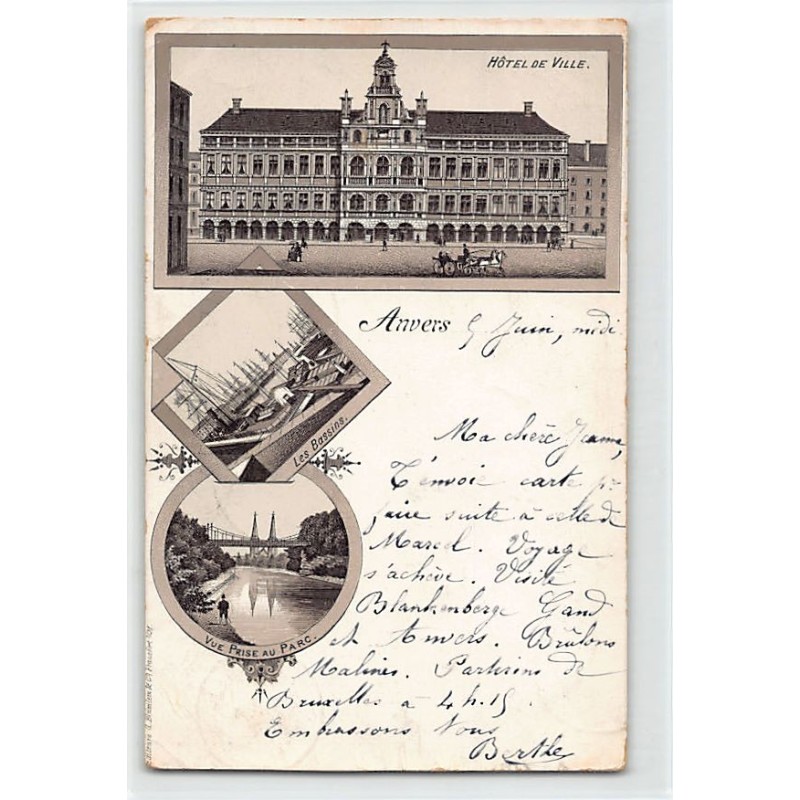 HÔTEL DE VILLE.
Anvers 5 Juin, midi
Les Bassins.
Ma chère Jeanne,
T'envoie carte pr
faire suite à celle de
Marcel. Voyage
s'achève. Visité
Blankenberge Gand
et Anvers. Brûlons
Malines. Partirons de
Bruxelles à 4h.15
Embrassons Vous
Berthe
VUE PRISE AU PARC.